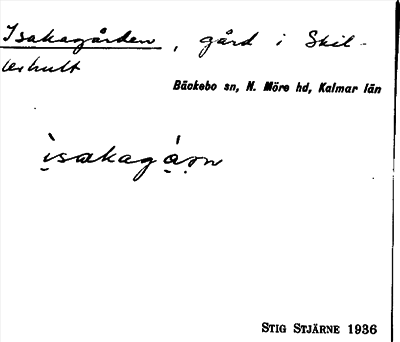 Isakagården, gård i Skil-
lerhult
Bäckebo sn, N. Möre hd, Kalmar län
ìsakagǻṛṇ
STIG STJÄRNE 1936